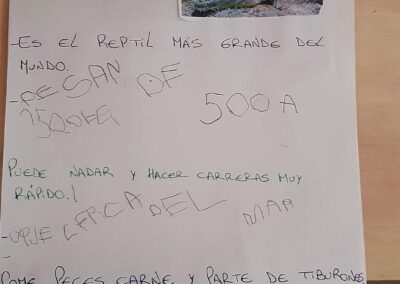 -ES EL REPTIL MÁS GRANDE DEL
MUNDO.
-PESAN DE
500 A
1500KG
PUEDE NADAR Y HACER CARRERAS MUY
RÁPIDO.
CERCA DEL MAR
COME PECES CARNE Y PARTE DE TIBURONES